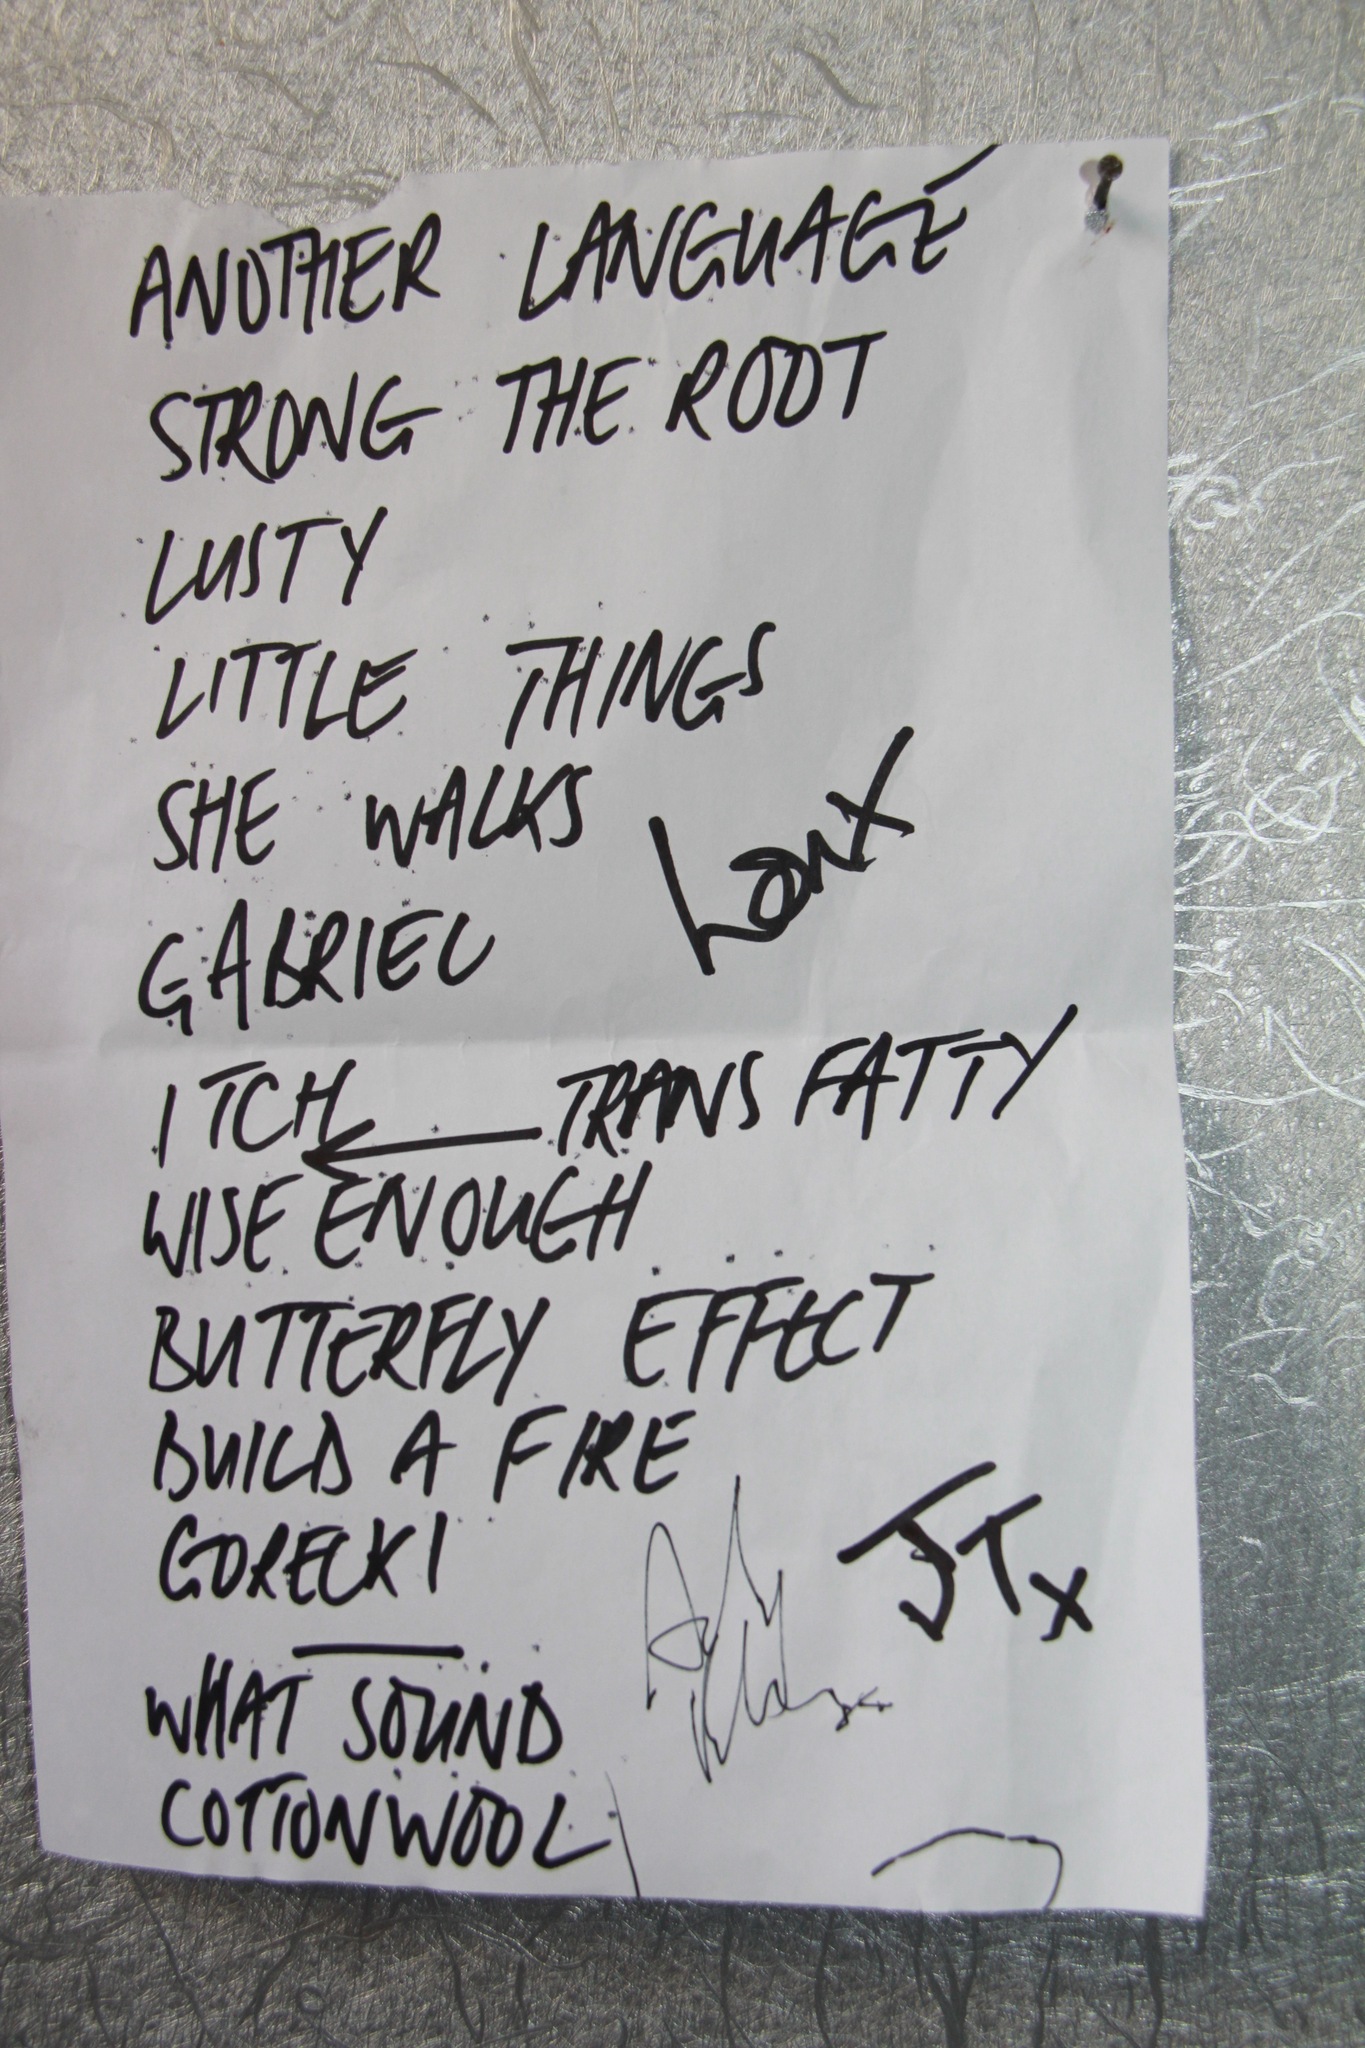 ANOTHER LANGUAGE
STRONG THE ROOT
LUSTY
LITTLE THINGS
SHE WALKS
GABRIEL
LOUX
ITCH ← TRANS FATTY
WISE ENOUGH
BUTTERFLY EFFECT
BUILD A FIRE
GORECKI
JTx
WHAT SOUND
COTTONWOOL